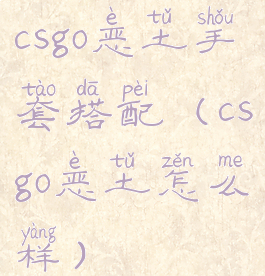 è tǔ shǒu
csgo恶土手
tào dā pèi
套搭配（cs
è tǔ zěn me
go恶土怎么
yàng
样）